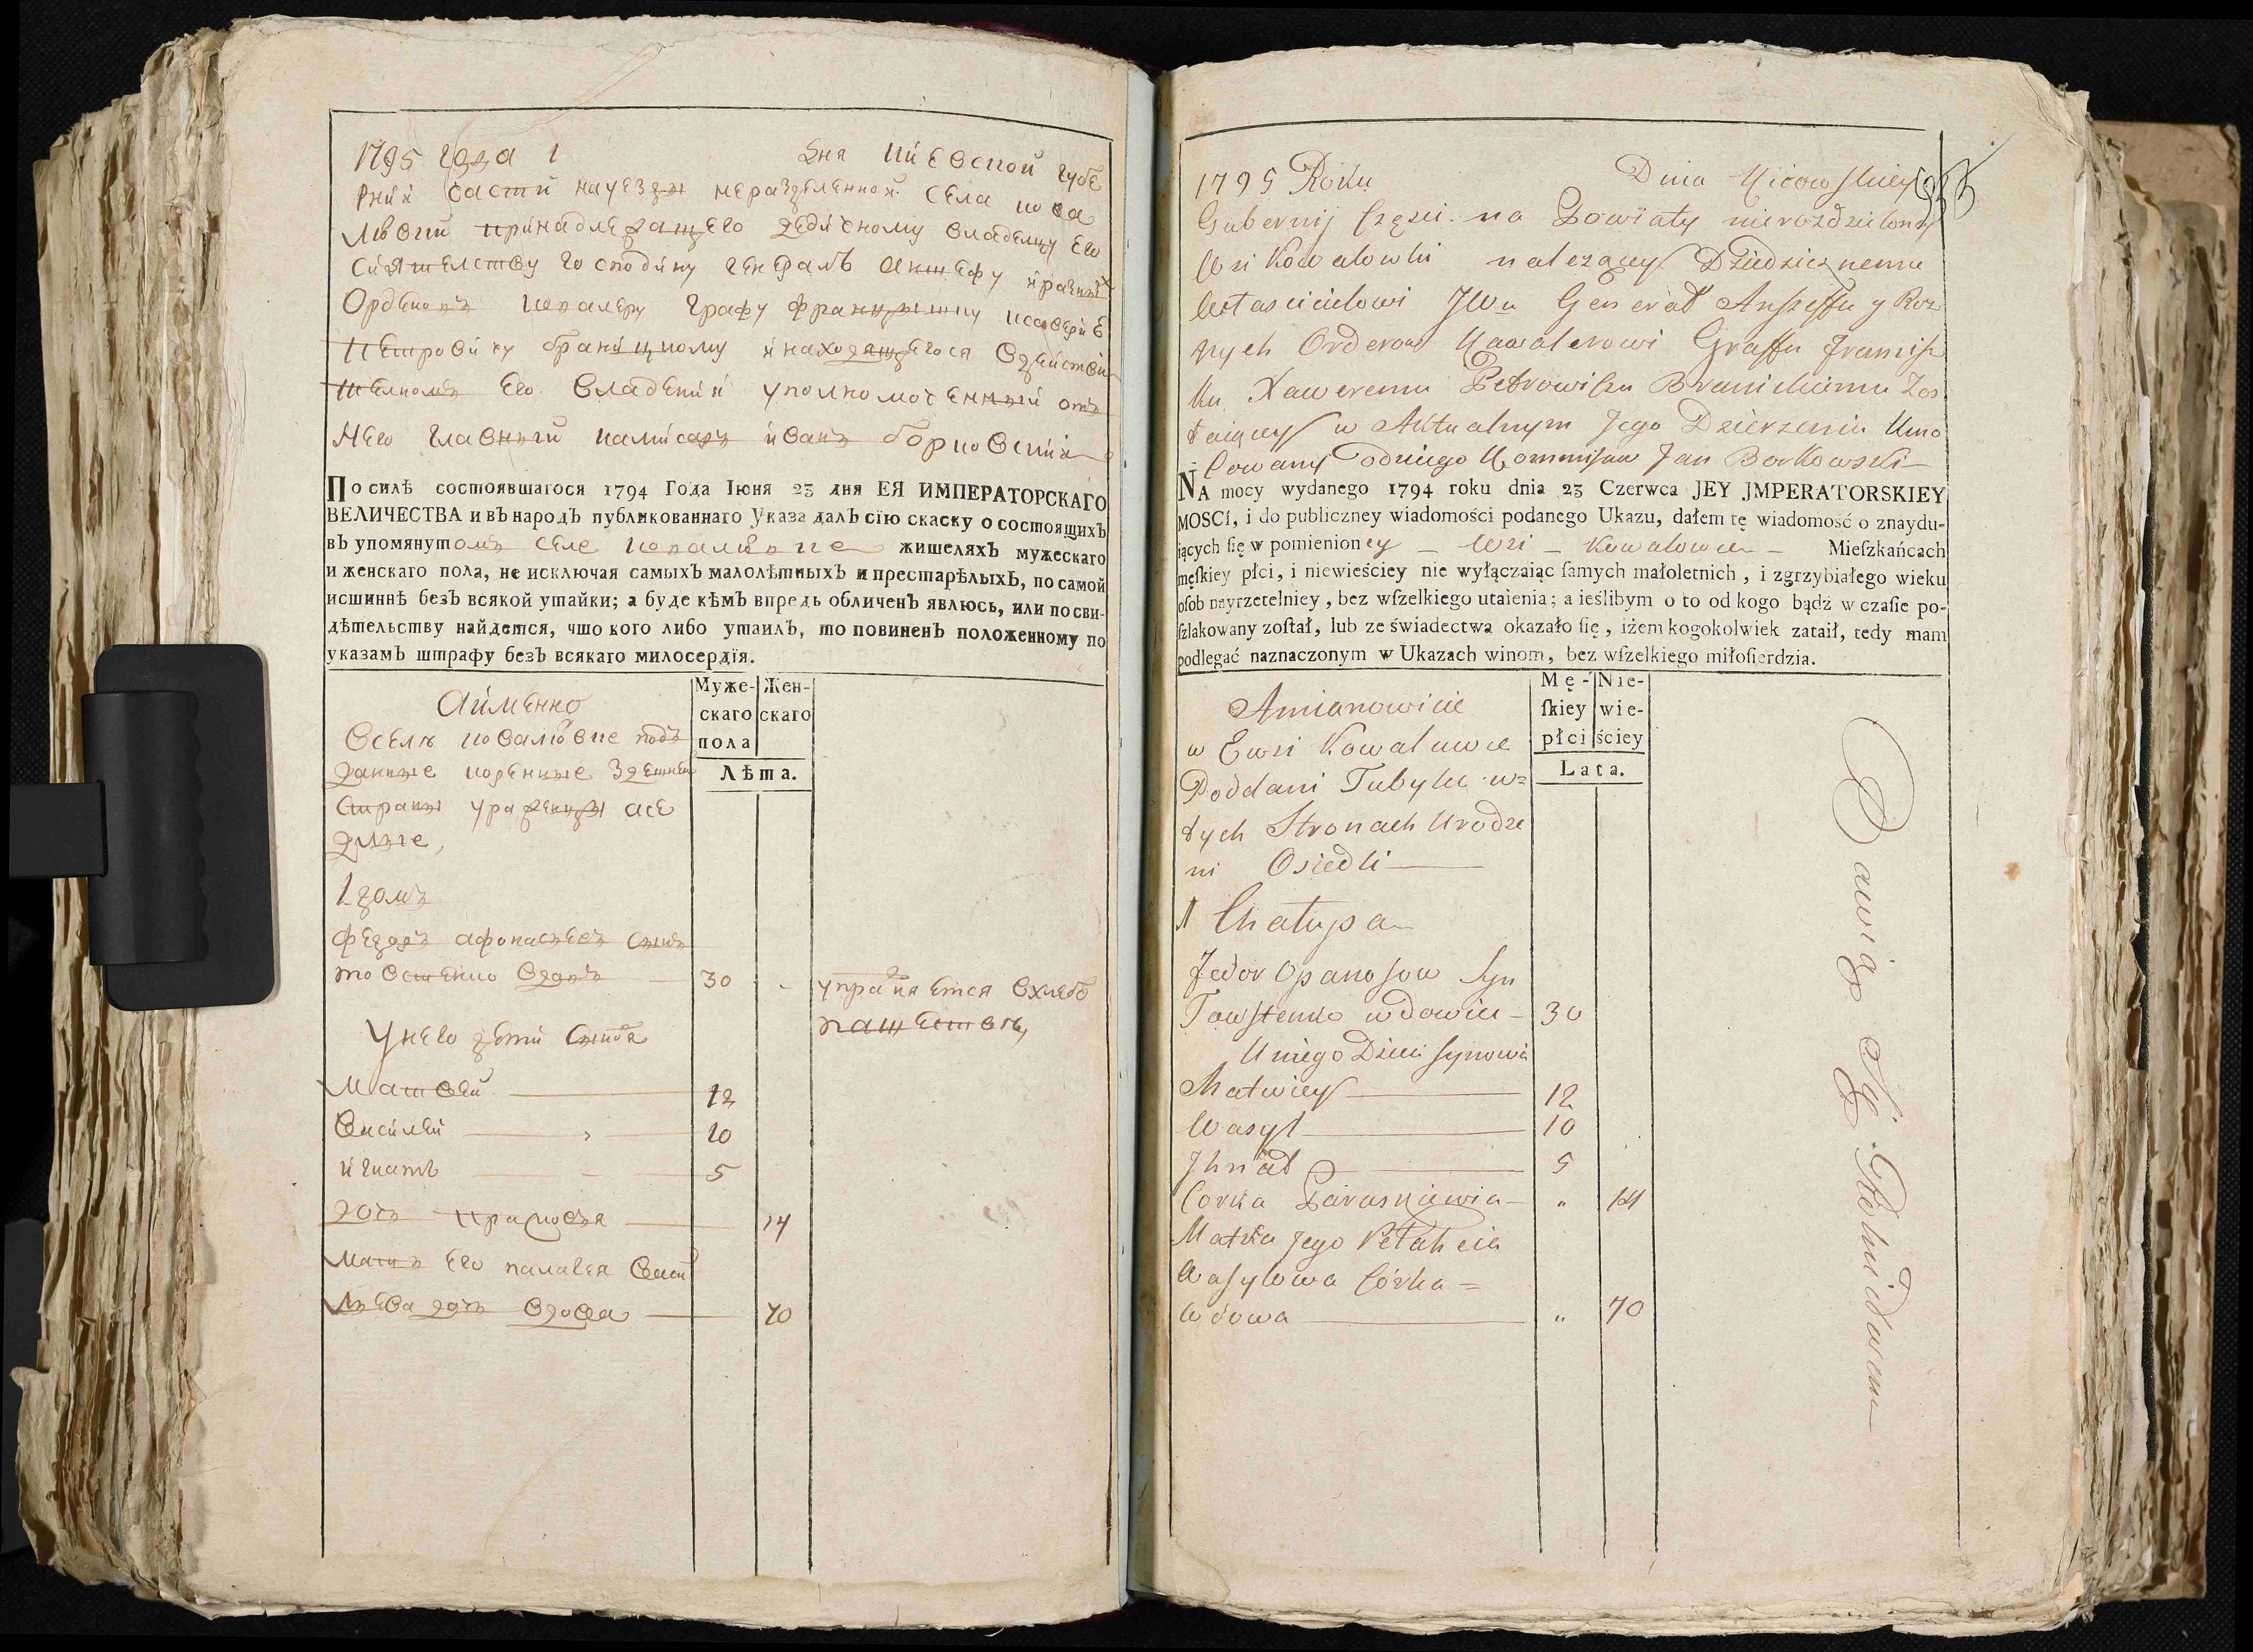 1795 года 1 дня Киевской губе
рнии части на уезды неразделенной села кова
лювки принадлежащего дедичному владельцу его
сиятельству господину генералъ аншефу и разныхъ
Орденовъ ковалеру графу францышку ксаверие
Петровичу браницкому и находящегося вдействи
тельномъ его владении уполномоченный отъ
него главный комисаръ иванъ борковский
ПО силѣ состоявшагося 1794 Года Іюня 23 дня ЕЯ ИМПЕРАТОРСКАГО
ВЕЛИЧЕСТВА и въ народъ публикованнаго Указа далъ сію скаску о состоящихъ
въ упомянутомъ селе коваловке жителяхъ мужескаго
и женскаго пола, не исключая самыхъ малолѣтныхъ и престарѣлыхъ, по самой
истиннѣ безъ всякой утайки; а буде кѣмъ впредь обличенъ явлюсь, или по сви-
дѣтельству найдется, что кого либо утаилъ, то повиненъ положенному по
указамъ штрафу безъ всякаго милосердія.
Муже-
скаго
пола
Жен-
скаго
Лѣта.
Аименно
Вселе ковалювке подъ
даные коренные здешней
страны уроженцы асе
длые,
1 домъ
федоръ афонасьевъ сынъ
товстенко вдовъ 30
управляется вхлебо
пашеством
Унего дети сыновя
Матвей 12
Василей 10
игнатъ 5
дочь прасковья 14
Мать его палагея Васи
льева дочь вдова 70
1795 Roku Dnia Kiiowskiey
Gubernij Części na Powiaty nierozdzieloney
Wsi Kowalowki należącey Dziedzicznemu
Włascicielowi JWu Generał Anszeffu y Roz
nych Orderow Kawalerowi Graffu Francisz
ku Xaweremu Petrowiczu Branickiemu Zos
taiącey w Aktualnym Jego Dzierzeniu Umo
cowany odniego Kommisarz Jan Borkowski
NA mocy wydanego 1794 roku dnia 23 Czerwca JEY JMPERATORSKIEY
MOSCİ, i do publiczney wiadomości podanego Ukazu, dałem tę wiadomość o znaydu-
iących ſię w pomienioney Wsi Kowalowce Mieſzkańcach
męſkiey płci, i niewieściey nie wyłączaiąc ſamych małoletnich, i zgrzybiałego wieku
oſob nayrzetelniey, bez wſzelkiego utaienia; a ieślibym o to od kogo bądź w czaſie po-
ſzlakowany zoſtał, lub ze świadectwa okazało ſię, iżem kogokolwiek zataił, tedy mam
podlegać naznaczonym w Ukazach winom, bez wſzelkiego miłoſierdzia.
Mę-
ſkiey
płci
Nie-
wie-
ściey
Lata.
Amianowicie
w Ewsi Kowalowce
Poddani Tubylcy w=
tych Stronach Urodze
ni Osiedli
1 Chałupa
Fedor Opanasow Syn
Towstenko wdowiec 30
U niego Dzieci Synowie
Matwiey 12
Wasyl 10
Jhnat 5
Corka Paraskiewia " 14
Matka Jego Pełaheia
Wasylowa Córka =
Wdowa " 70